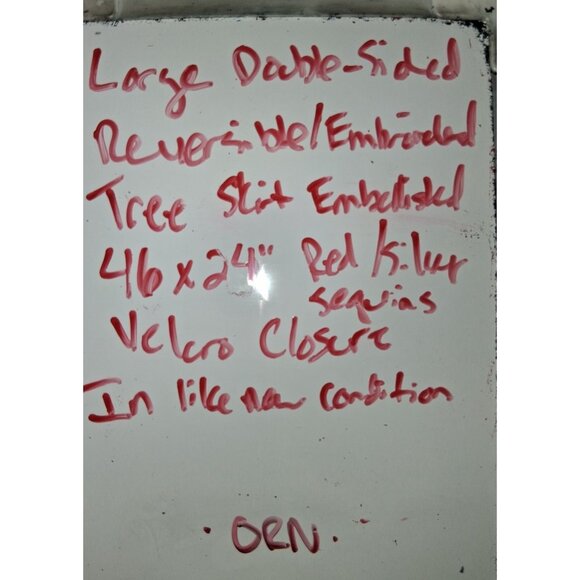 Large Double-Sided
Reversible/Embroided
Tree Skirt Embellished
46 x 24" Red/Silver
sequins
Velcro Closure
In like new condition
· ORN ·